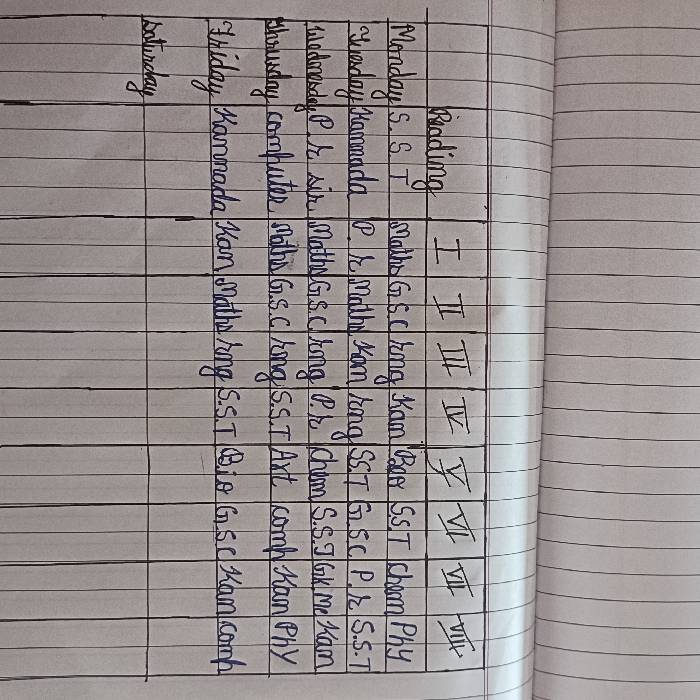 Reading I II III IV V VI VII VIII
Monday S.S.T Maths G.SC Eng Kan Bio SST Chem Phy
Tuesday Kannada P.E Maths Kan Eng S.S.T G.SC P.E S.S.T
Wednesday P.E sir Maths G.SC Eng P.E Chem S.S.T Gk me Kan
Thursday computer Maths G.SC Eng S.S.T Art comp Kan Phy
Friday Kannada Kan Maths Eng S.S.T Bio G.SC Kan comp
Saturday